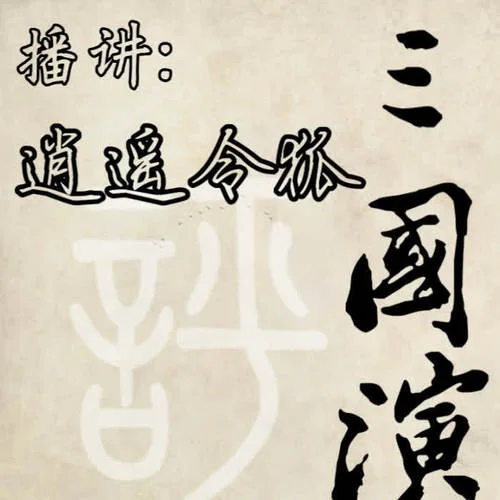 播讲:
逍遥令狐
三國演
評